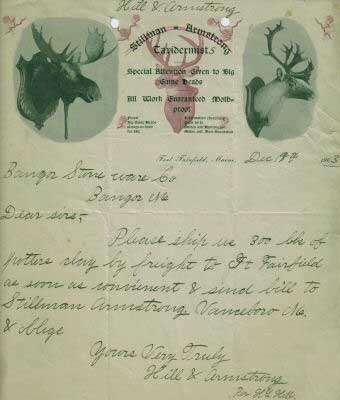 Hill & Armstrong
Stillman Armstrong
Taxidermist.s
Special Attention Given to Big
Game Heads
All Work Guaranteed Moth-
proof
Fort Fairfield, Maine, Dec 19
Bangor Stone ware Co
Bangor Me
Dear sirs,-
Please ship us 300 lbs of
potters clay by freight to Ft Fairfield
as soon as convienent & send bill to
Stillman Armstrong Vanceboro Me.
& oblige
Yours Very Truly
Hill & Armstrong
Per